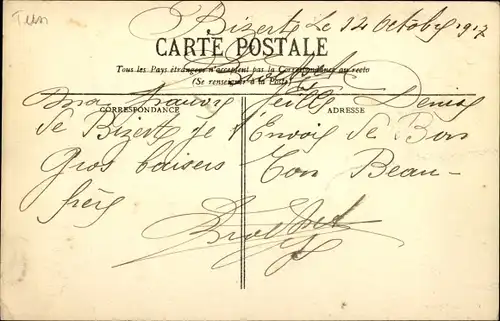 Tun
Bizert Le 12 Octobre 1917
CARTE POSTALE
Tous les Pays étrangers n'acceptent pas la Correspondance au recto
(Se renseigner à la Poste)
CORRESPONDANCE
ADRESSE
Ma Denise
de Bizert je t'Envoi de Bon
Gros baisers Ton Beau-
frère